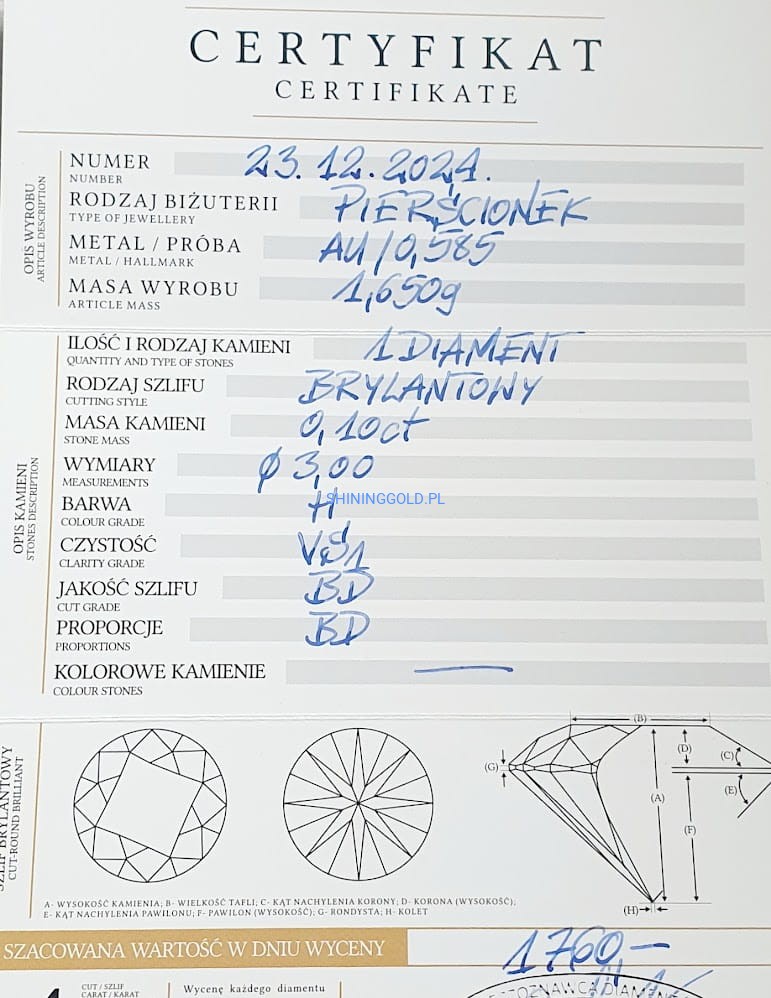 CERTYFIKAT
CERTIFIKATE
OPIS WYROBU
ARTICLE DESCRIPTION
NUMER 23.12.2024.
NUMBER
RODZAJ BIŻUTERII PIERŚCIONEK
TYPE OF JEWELLERY
METAL / PRÓBA AU/0,585
METAL / HALLMARK
MASA WYROBU 1,650g
ARTICLE MASS
OPIS KAMIENI
STONES DESCRIPTION
ILOŚĆ I RODZAJ KAMIENI 1 DIAMENT
QUANTITY AND TYPE OF STONES
RODZAJ SZLIFU BRYLANTOWY
CUTTING STYLE
MASA KAMIENI 0,10ct
STONE MASS
WYMIARY ø 3,00
MEASUREMENTS
BARWA H
COLOUR GRADE
SHININGGOLD.PL
CZYSTOŚĆ VS1
CLARITY GRADE
JAKOŚĆ SZLIFU BD
CUT GRADE
PROPORCJE BD
PROPORTIONS
KOLOROWE KAMIENIE —
COLOUR STONES
SZLIF BRYLANTOWY
CUT-ROUND BRILLIANT
(B)
(D)
(C)
(G)
(E)
(A)
(F)
(H)
A- WYSOKOŚĆ KAMIENIA; B- WIELKOŚĆ TAFLI; C- KĄT NACHYLENIA KORONY; D- KORONA (WYSOKOŚĆ);
E- KĄT NACHYLENIA PAWILONU; F- PAWILON (WYSOKOŚĆ); G- RONDYSTA; H- KOLET
SZACOWANA WARTOŚĆ W DNIU WYCENY 1760,-
CUT / SZLIF
CARAT / KARAT
Wycenę każdego diamentu